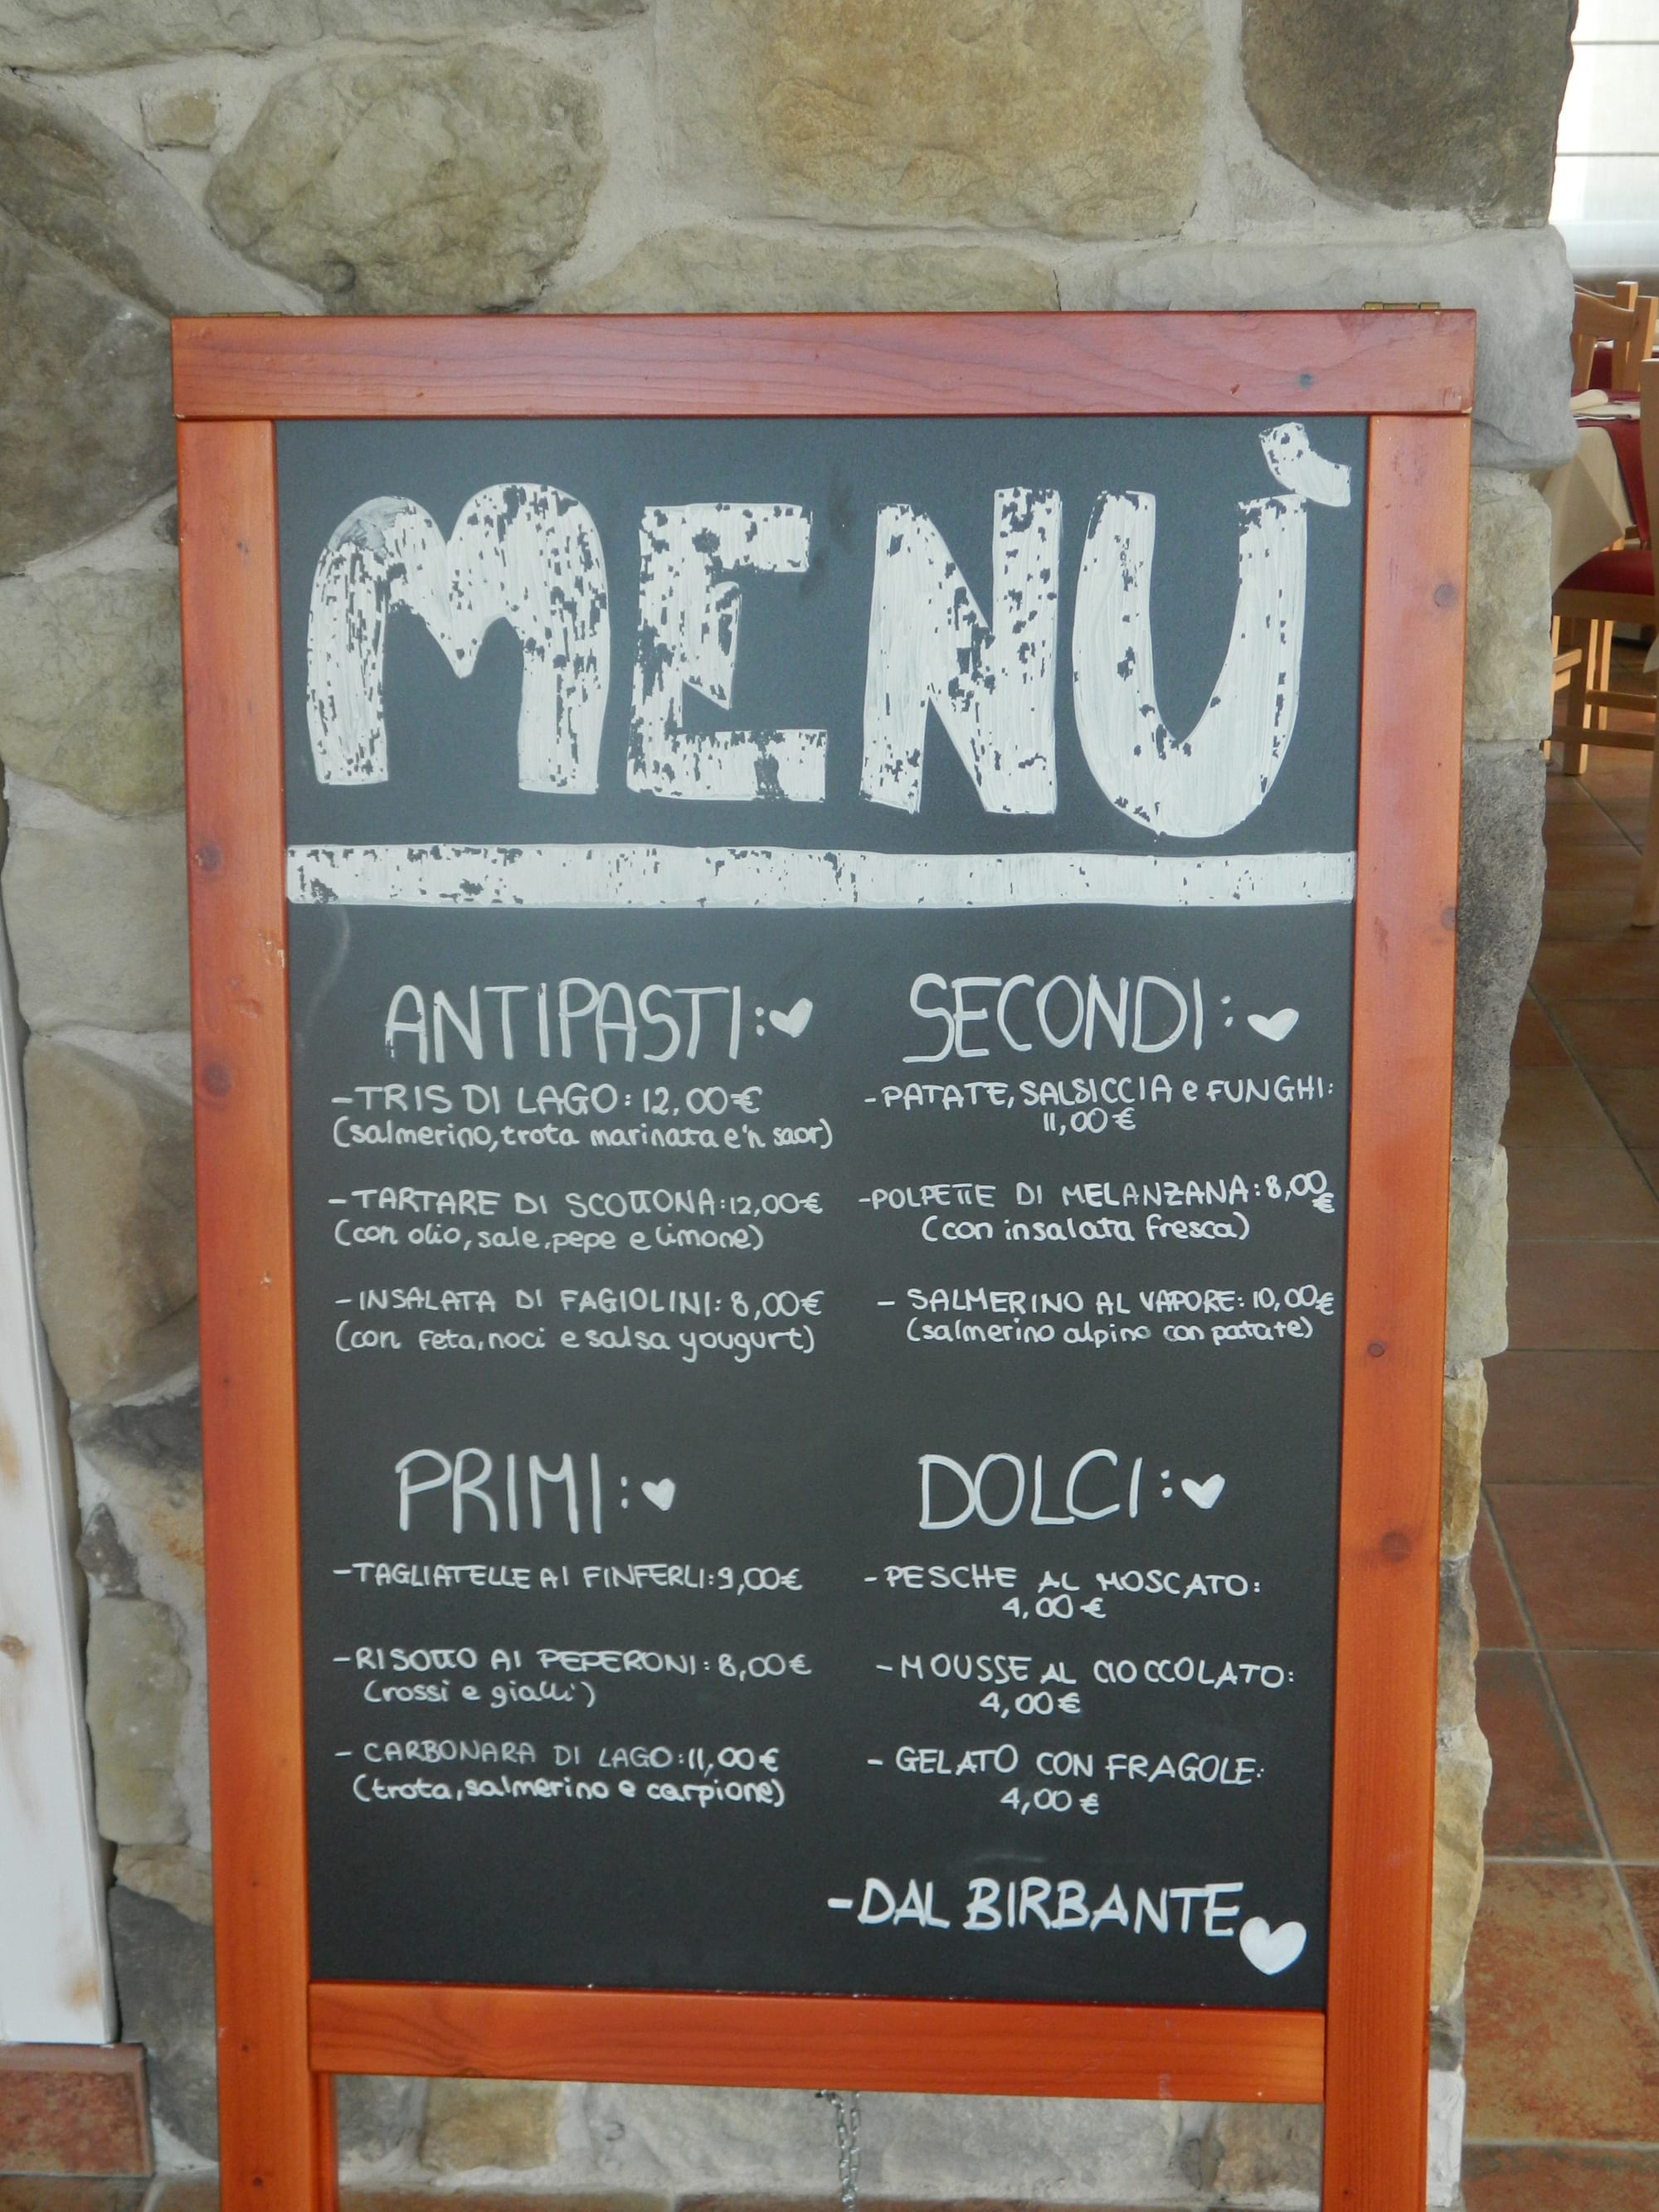 MENÙ
ANTIPASTI:
-TRIS DI LAGO: 12,00€
(salmerino, trota marinata e'n saor)
-TARTARE DI SCOTTONA: 12,00€
(con olio, sale, pepe e limone)
-INSALATA DI FAGIOLINI: 8,00€
(con feta, noci e salsa yougurt)
PRIMI:
-TAGLIATELLE AI FINFERLI: 9,00€
-RISOTTO AI PEPERONI: 8,00€
(rossi e gialli)
- CARBONARA DI LAGO: 11,00€
(trota, salmerino e carpione)
SECONDI:
-PATATE, SALSICCIA e FUNGHI:
11,00€
-POLPETTE DI MELANZANA: 8,00
€
(con insalata fresca)
- SALMERINO AL VAPORE: 10,00€
(salmerino alpino con patate)
DOLCI:
-PESCHE AL MOSCATO:
4,00€
-MOUSSE AL CIOCCOLATO:
4,00€
- GELATO CON FRAGOLE:
4,00€
-DAL BIRBANTE